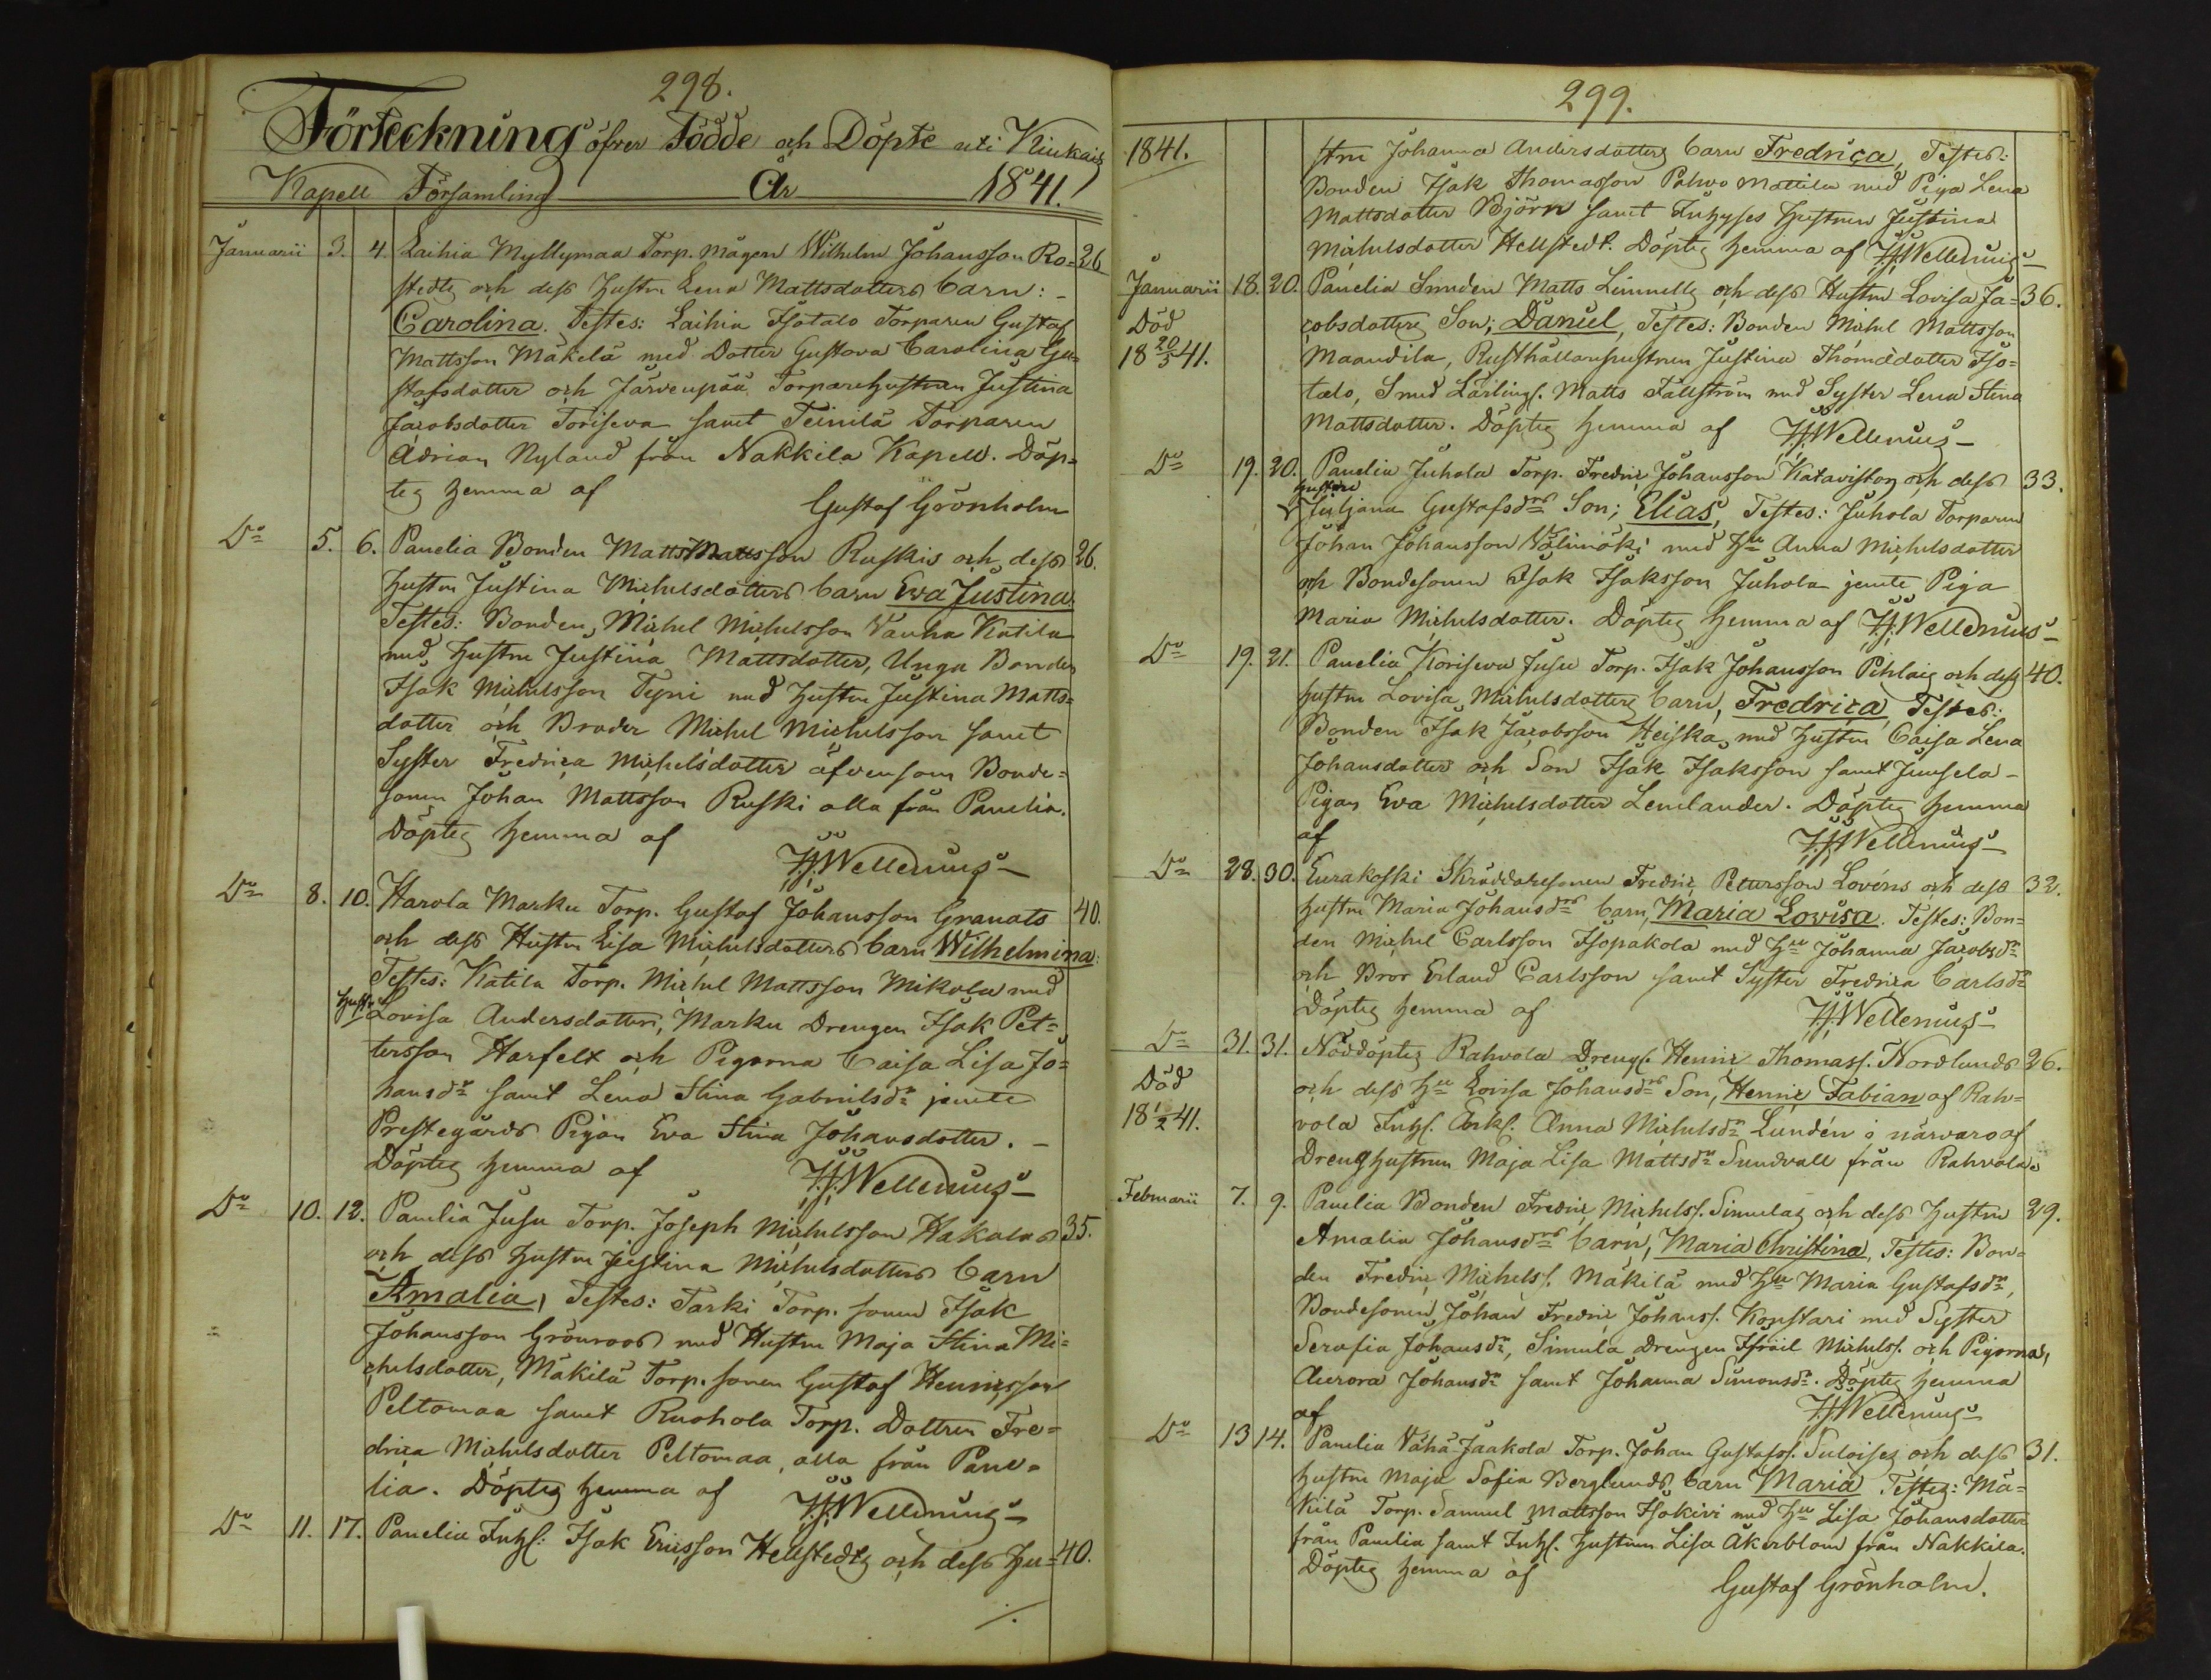 298.
Förteckning öfver Födde och Döpte uti Kiukais
Kapell Församling År 1841.
Januarii 3. 4. Laihia Myllymaa Torp. mågen Wilhelm Johansson Ro= 26
stedts och dess Hustru Lena Mattsdotters barn: -
Carolina. Testes: Laihia Isotalo Torparen Gustaf
Mattsson Mäkelä med Dotter Gustava Carolina Gu=
stafsdotter och Järvenpää Torparehustrun Justina
Jacobsdotter Toriseva samt Teinilä Torparen
Adrian Nyland från Nakkila Kapell. Döp=
tes hemma af Gustaf Grönholm
Do 5. 6. Panelia Bonden Matts Mattsson Ruskis och dess 26.
hustru Justina Michelsdotters barn Eva Justina.
Testes: Bonden, Michel Michelsson Vanha Katila
med hustru Justina Mattsdotter, Unga Bonden
Isak Michelsson Tyni med hustru Justina Matts=
dotter och Broder Michel Michelsson samt
Syster Fredrica Michelsdotter äfvensom Bonde=
sonen Johan Mattsson Ruski alla från Panelia.
Döptes hemma af H.J. Wellenius
Do 8. 10. Harola Marku Torp. Gustaf Johansson Granats 40.
och dess Hustru Lisa Michelsdotters barn Wilhelmina:
Testes: Katila Torp. Michel Mattsson Mikola med
hustru Lovisa Andersdotter, Marku Drengen Isak Pet=
tersson Harfelt och Pigorna Caisa Lisa Jo=
hansdr samt Lena Stina Gabrielsdr jemte
Prestegårds Pigan Eva Stina Johansdotter. -
Döptes hemma af H.J. Wellenius
Do 10. 12. Panelia Jusu Torp. Joseph Michelsson Hakalas 35.
och dess hustru Justina Michelsdotters barn
Amalia, Testes: Tarki Torp. sonen Isak
Johansson Grönroos med Hustru Maja Stina Mi=
chelsdotter, Mäkilä Torp. sonen Gustaf Henricsson
Peltomaa samt Ruohola Torp. Dottren Fre=
drica Michelsdotter Peltomaa, alla från Pane=
lia. Döptes hemma af H.J. Wellenius
Do 11. 17. Panelia Inhs: Isak Ericsson Hellstedts och dess hu= 40.
299.
1841. stru Johanna Andersdotters barn Fredrica, Testes:
Bonden Isak Thomasson Pahvo Mattila med Piga Lena
Mattsdotter Björn samt Inhyses hustrun Justina
Michelsdotter Hellstedt. Döptes hemma af H.J. Wellenius
Januarii 18. 20. Panelia Smeden Matts Linnells och dess Hustru Lovisa Ja= 36.
Död cobsdotters Son; Daniel, Testes: Bonden Michel Mattsson
18 20/5 41. Maandila, Rusthållarehustrun Justina Thomædotter Iso=
talo, Smed Lärlings. Matts Fällström med Syster Lena Stina
Mattsdotter. Döptes hemma af H.J. Wellenius
Do 19. 20. Panelia Juhola Torp. Fredric Johansson Katavistos och dess 33.
hustru Juljana Gustafsdrs Son; Elias, Testes: Juhola Torparen
Johan Johansson Välimäki med Hu Anna Michelsdotter
och Bondesonen Isak Isaksson Juhola jemte Piga
Maria Michelsdotter. Döptes hemma af H.J. Wellenius
Do 19. 21. Panelia Koriseva Jusu Torp. Isak Johansson Pihlais och dess 40.
hustru Lovisa Michelsdotters barn, Fredrica, Testes:
Bonden Isak Jacobsson Heiska, med hustru Caisa Lena
Johansdotter och Son Isak Isaksson samt Juusela-
Pigan Eva Michelsdotter Lemlander. Döptes hemma
af H.J. Wellenius
Do 28. 30. Eurakoski Skräddaresonen Fredric Petersson Lovéns och dess 32.
hustru Maria Johansdrs barn, Maria Lovisa. Testes: Bon=
den Michel Carlsson Isopakola med Hu Johanna Jacobsdr
och Bror Erland Carlsson samt Syster Fredrica Carlsdr
Döptes hemma af H.J. Wellenius
Do 31. 31. Nöddöptes Rahvola Drengs. Henric Thomass. Nordlunds 26.
Död och dess Hu Lovisa Johansdrs Son, Henric Fabian af Rah=
18 1/2 41. vola Inhs. Enks. Anna Michelsdr Lundén i närvaro af
Dreng hustrun Maja Lisa Mattsdr Sundvall från Rahvola.
Februarii 7. 9. Panelia Bonden Fredric Michelss. Simulas och dess Hustru 29.
Amalia Johansdrs barn, Maria Christina, Testes: Bon=
den Fredric Michelss. Mäkilä med Hu Maria Gustafsdr,
Bondesonen Johan Fredric Johanss. Konstari med Syster
Serafia Johansdr, Simula Drengen Israil Michelss. och Pigorna,
Aurora Johansdr samt Johanna Simonsdr. Döptes hemma
af H.J. Wellenius
Do 13 14. Panelia Vähä-Jaakola Torp. Johan Gustafss. Suloises och dess 31.
hustru Maja Sofia Berglunds barn Maria Testes: Mä=
kilä Torp. Samuel Mattsson Isokivi med Hu Lisa Johansdotter
från Panelia samt Inhs. hustrun Lisa Åkerblom från Nakkila.
Döptes hemma af Gustaf Grönholm.